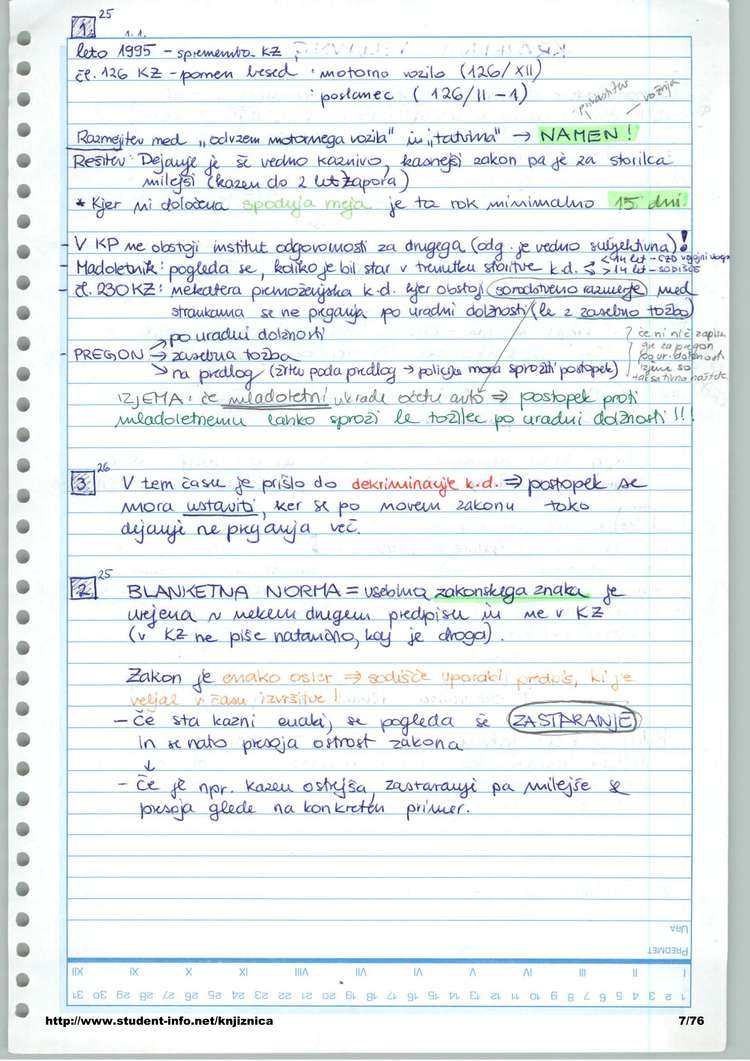 1. 25
leto 1995 - sprememba KZ
čl. 126 KZ - pomen besed · motorno vozilo (126/XII)
· poslanec (126/II-1)
vožnja
Razmejitev med „odvzem motornega vozila" in „tatvina" → NAMEN!
Rešitev: Dejanje je še vedno kaznivo, kasnejši zakon pa je za storilca
milejši (kazen do 2 let zapora)
* Kjer ni določena spodnja meja je ta rok minimalno 15 dni
- V KP ne obstoji institut odgovornosti za drugega (odg. je vedno subjektivna)!
- Mladoletnik: pogleda se, koliko je bil star v trenutku storitve k.d. < 14 let - CZD
> 14 let - SODIŠČE
- čl. 230 KZ: nekatera premoženjska k.d. kjer obstoji sorodstveno razmerje med
strankama se ne preganja po uradni dolžnosti (le z zasebno tožbo)
→ po uradni dolžnosti
- PREGON → zasebna tožba
→ na predlog (žrtev poda predlog → policija mora sprožiti postopek)
če ni nič zapisa
gre za pregon
po ur. dolžnosti
izjeme so
taksativno naštete
IZJEMA: če mladoletni ukrade očetu avto ⇒ postopek proti
mladoletnemu lahko sproži le tožilec po uradni dolžnosti!!!
3. 26
V tem času je prišlo do dekriminacije k.d. ⇒ postopek se
mora ustaviti, ker se po novem zakonu tako
dejanje ne preganja več.
2. 25
BLANKETNA NORMA = vsebina zakonskega znaka je
urejena v nekem drugem predpisu in ne v KZ
(v KZ ne piše natančno, kaj je droga).
Zakon je enako oster ⇒ sodišče uporabi predpis, ki je
veljal v času izvršitve!
- Če sta kazni enaki, se pogleda še ZASTARANJE
in se nato presoja ostrost zakona
↓
- Če je npr. kazen ostrejša, zastaranje pa milejše se
presoja glede na konkreten primer.
URA
PREDMET
I II III IV V VI VII VIII IX X XI XII
1 2 3 4 5 6 7 8 9 10 11 12 13 14 15 16 17 18 19 20 21 22 23 24 25 26 27 28 29 30 31
http://www.student-info.net/knjiznica
7/76